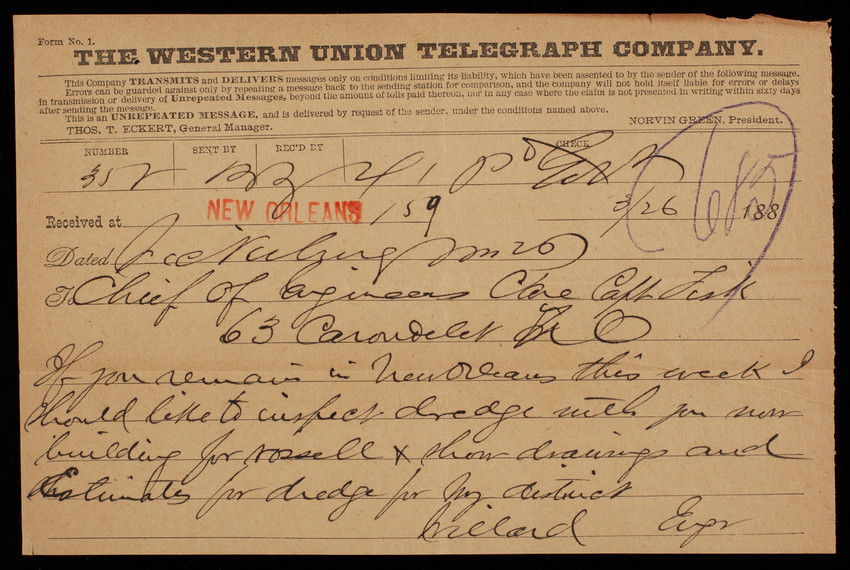 Form No. 1.
THE WESTERN UNION TELEGRAPH COMPANY.
This Company TRANSMITS and DELIVERS messages only on conditions limiting its liability, which have been assented to by the sender of the following message.
Errors can be guarded against only by repeating a message back to the sending station for comparison, and the company will not hold itself liable for errors or delays
in transmission or delivery of Unrepeated Messages, beyond the amount of tolls paid thereon, nor in any case where the claim is not presented in writing within sixty days
after sending the message.
This is an UNREPEATED MESSAGE, and is delivered by request of the sender, under the conditions named above.
THOS. T. ECKERT, General Manager. NORVIN GREEN, President.
NUMBER SENT BY REC'D BY CHECK
352 41 Pd
Received at NEW ORLEANS 159 3/26 188
685
Dated Vicksburg 26
To Chief of Engineers Care Capt Fisk
63 Carondelet N O
If you remain in New Orleans this week I
should like to inspect dredge with you now
building for rossell & show drawings and
Estimates for dredge for my district
Willard Engr